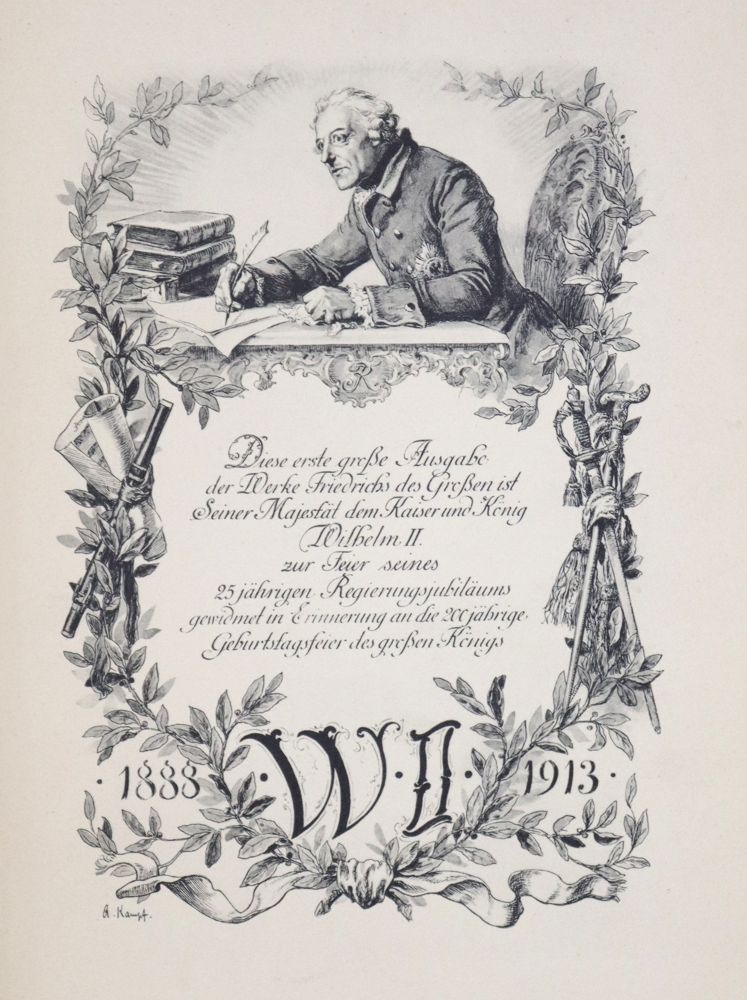 R
Diese erste große Ausgabe
der Werke Friedrichs des Großen ist
Seiner Majestät dem Kaiser und König
Wilhelm II.
zur Feier seines
25 jährigen Regierungsjubiläums
gewidmet in Erinnerung an die 200 jährige
Geburtstagsfeier des großen Königs
· 1888 · W · II · 1913 ·
A. Kampf.